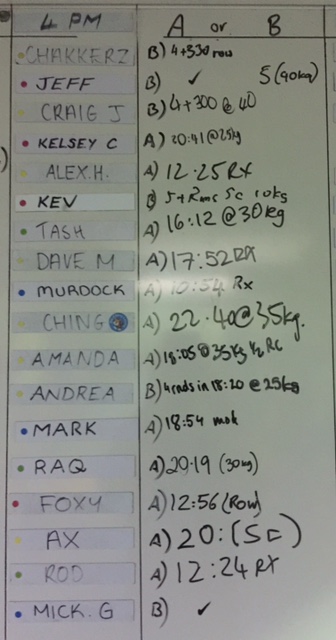 4 PM A or B
CHAKKERZ B) 4+330 row
JEFF B) ✓ 5 (40kg)
CRAIG J B) 4+300 @ 40
KELSEY C A) 20:41 @25kg
ALEX.H. A) 12.25 RX
KEV B) 5+ Sc 10kg
TASH A) 16:12 @30kg
DAVE M A) 17:52 RX
MURDOCK A) 10:54 Rx
CHING A) 22.40@35kg.
AMANDA A) 18:05@35kg ½
ANDREA B) 4 rnds in 18:20 @ 25kg
MARK A) 18:54
RAQ A) 20.19 (30kg)
FOXY A) 12:56 (Row)
AX A) 20: (Sc)
ROD A) 12:24 RX
MICK.G B) ✓